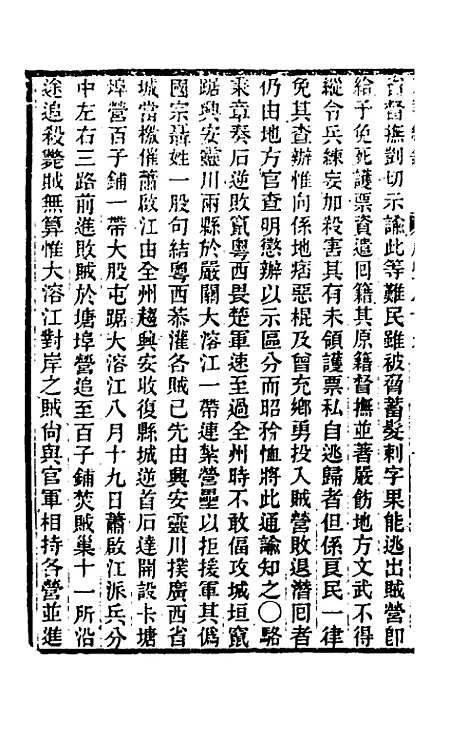 省督撫剴切示諭此等難民雖被脅蓄髮刺字果能逃出賊營卽
給予免死護票資遣回籍其原籍督撫並著嚴飭地方文武不得
縱令兵練妄加殺害其有未領護票私自逃歸者但係良民一律
免其查辦惟向係地痞惡棍及曾充鄉勇投入賊營敗退潛囘者
仍由地方官查明懲辦以示區分而昭矜恤將此通諭知之〇駱
秉章奏石逆敗竄粵西畏楚軍速至過全州時不敢偪攻城垣竄
踞興安靈川兩縣於嚴關大溶江一帶連紮營壘以拒援軍其僞
國宗聶姓一股句結粵西恭灌各賊已先由興安靈川撲廣西省
城當檄催蕭啟江由全州趨興安收復縣城逆首石達開設卡塘
埠營百子鋪一帶大股屯踞大溶江八月十九日蕭啟江派兵分
中左右三路前進敗賊於塘埠營追至百子鋪焚賊巢十一所沿
途追殺斃賊無算惟大溶江對岸之賊尙與官軍相持各營並進